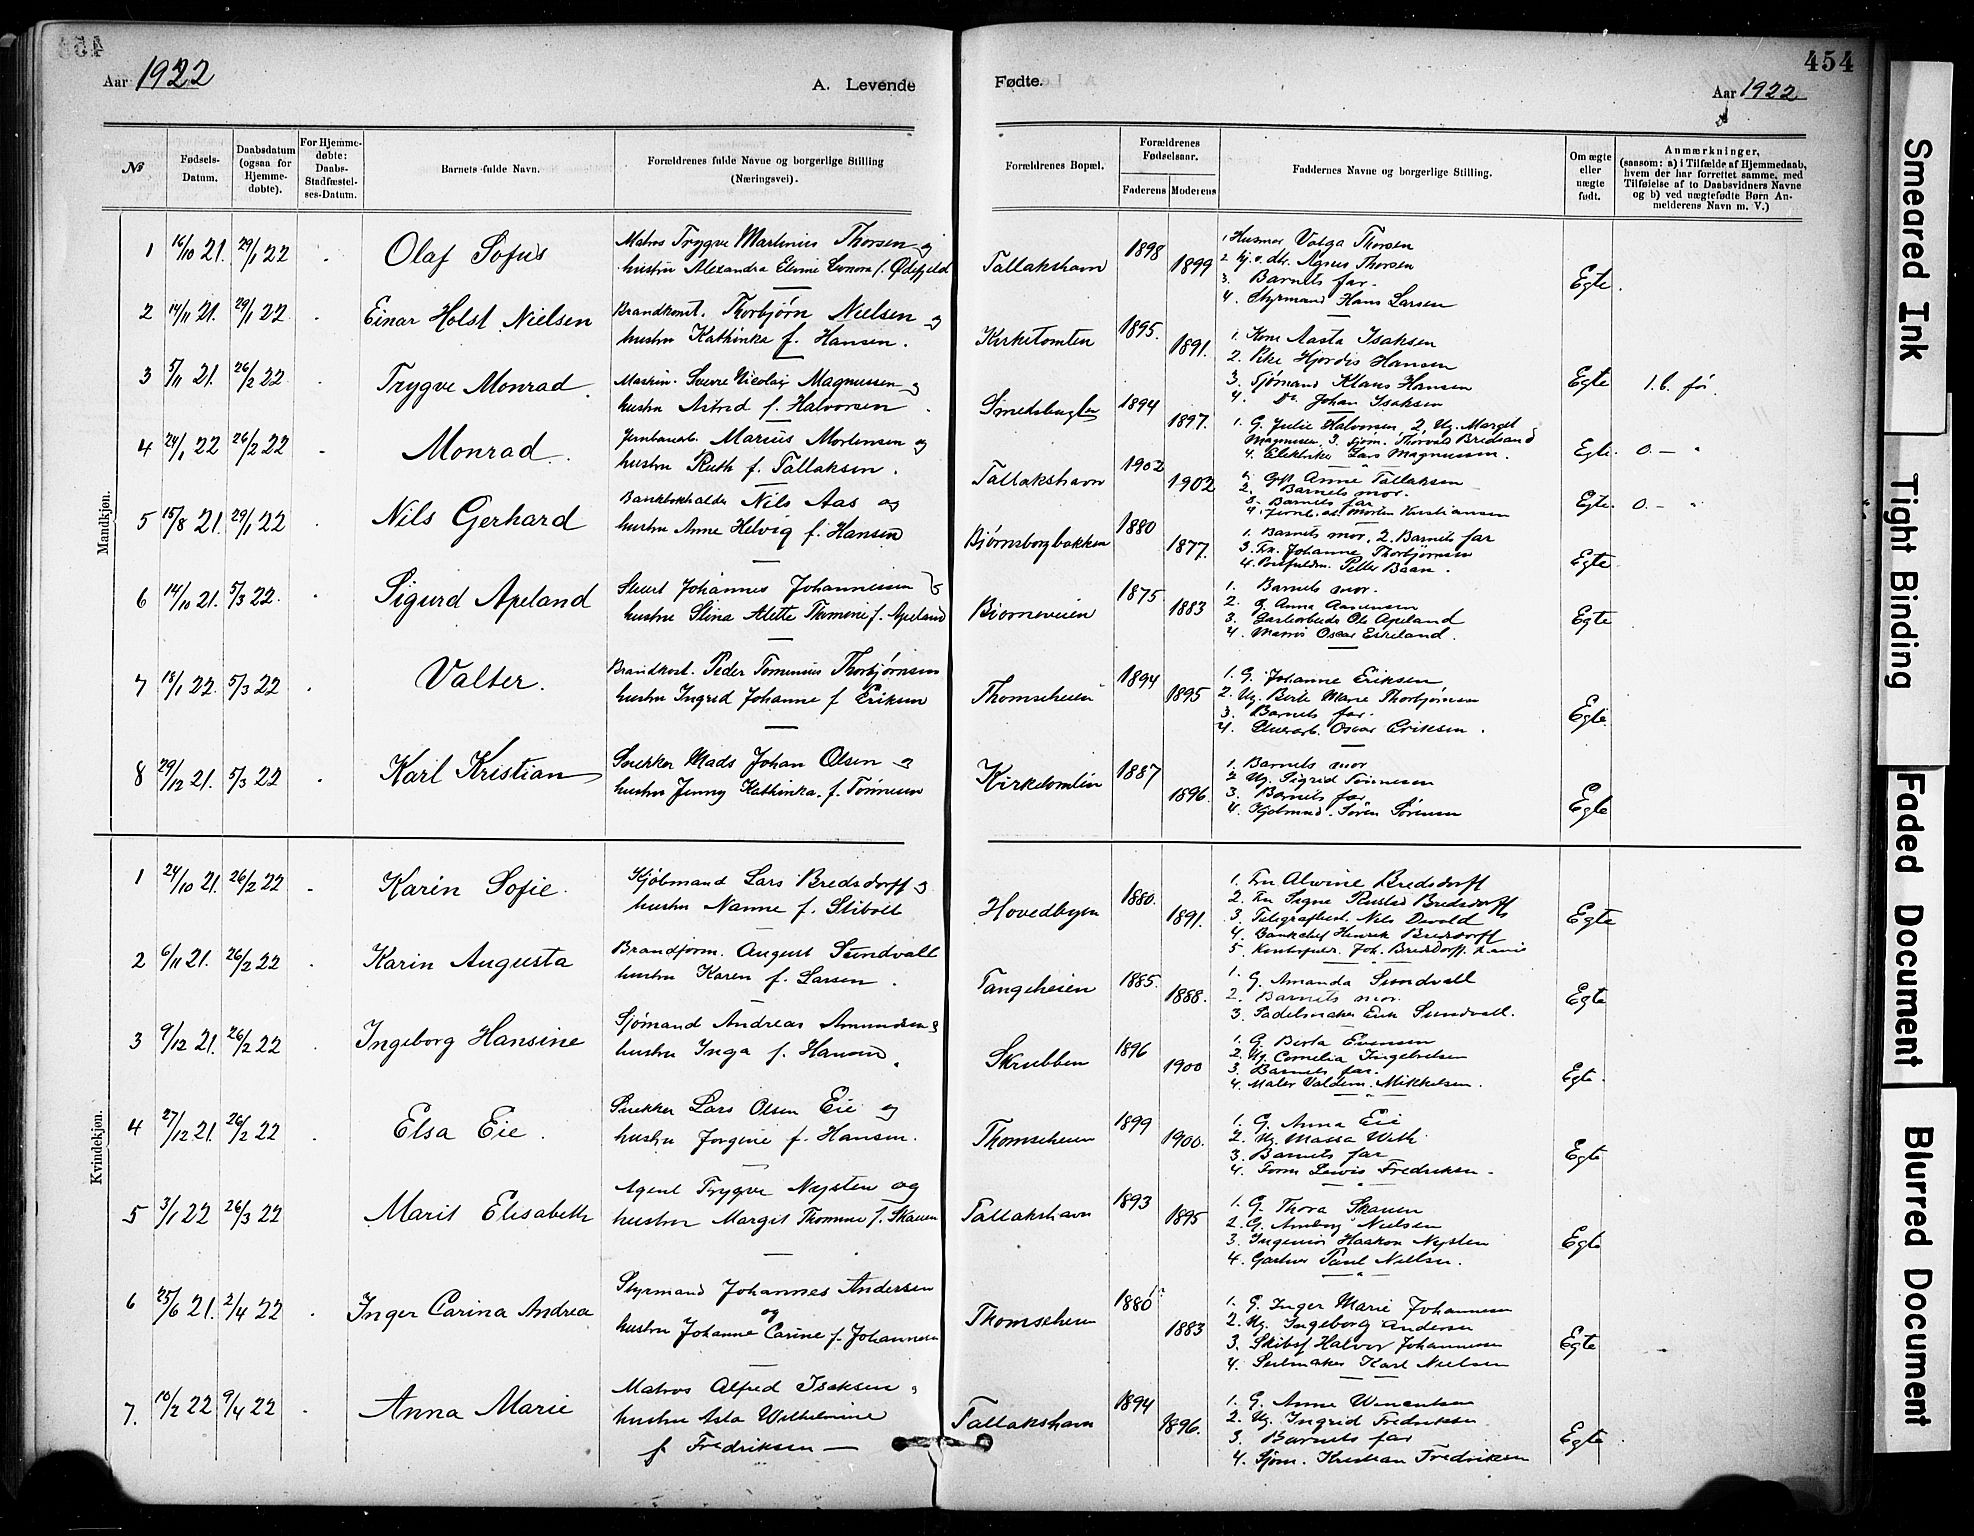 454
Aar 1922
A. Levende
Fødte.
Aar 1922
No
Fødsels-Datum.
Daabsdatum (ogsaa for Hjemme-døbte).
For Hjemme-døbte: Daabs-Stadfæstel-ses-Datum.
Barnets fulde Navn.
Forældrenes fulde Navne og borgerlige Stilling (Næringsvei).
Forældrenes Bopæl.
Forældrenes Fødselsaar.
Faderens
Moderens
Faddernes Navne og borgerlige Stilling.
Om ægte eller uægte født.
Anmærkninger,
(saasom: a) i Tilfælde af Hjemmedaab,
hvem der har forrettet samme, med
Tilføielse af to Daabsvidners Navne
og b) ved uægtefødte Børn An-
melderens Navn m. V.)
Mandkjøn.
1 16/10 21. 29/1 22 Olaf Sofus
Matros Trygve Martinius Thorsen og
hustru Alexandra Elvine Leonora f. Ødefjeld
Tallakshavn 1898 1899
1 Husmor Valga Thorsen
2 Agnes Thorsen
3. Barnets far.
4. Styrmand Hans Larsen
Egte.
2 14/11 21. 29/1 22 Einar Holst Nielsen
Brandkonst. Thorbjørn Nielsen og
hustru Kathinka f. Hansen.
Kirketomten 1895. 1891.
1. Kone Aasta Isaksen
2. Pike Hjordis Hansen
3. Sjømand Klaus Hansen
4. Do Johan Isaksen
Egte 1. b. før
3 5/11 21. 26/2 22 Trygve Monrad
Maskin. Sverre Nicolay Magnussen og
hustru Astrid f. Halvorsen.
Smedsbugten 1894 1897.
1. G. Julie Halvorsen, 2. Ug. Margit
Magnussen, 3. Sjøm. Thorvald Bredsand
4. Elektriker Lars Magnussen.
Egte. 0. — "
4 24/1 22 26/2 22 Monrad.
Jernbanearb. Marius Mortensen og
hustru Ruth f. Tallaksen.
Tallakshavn 1902 1902
Anne Tallaksen
2. Barnets mor.
3. Barnets far
4. Morten Kristiansen
Egte. 0. — "
5 15/8 21. 29/1 22 Nils Gerhard
Bankbokholder Nils Aas og
hustru Anne Helvig f. Hansen
Bjørnsborgbakken 1880 1877.
1. Barnets mor, 2. Barnets far
3. Fru. Johanne Thorbjørnsen
4. Petter Baan.
Egte.
6 14/10 21. 5/3 22. Sigurd Apeland
Stuert Johannes Johannessen og
hustru Stina Alette Thomine f. Apeland
Bjørneveien 1875 1883
1. Barnets mor.
2. G. Anna Aanensen
3. Ole Apeland
4. Matros Oscar Eikeland.
Egte
7 18/1 22. 5/3 22 Valter.
Brandkonst. Peder Tominius Thorbjørnsen
hustru Ingrid Johanne f Eriksen
Thomseheien 1894 1895
1. G. Johanne Eriksen
2. Ug. Berte Marie Thorbjørnsen
3. Barnets far.
4. Oscar Eriksen.
Egte.
8 29/12 21. 5/3 22 Karl Kristian
Snekker Mads Johan Olsen og
hustru Jenny Kathinka. f. Tønnesen
Kirketomten 1887 1896.
1. Barnets mor
2 Ug. Sigrid Tønnesen
3. Barnets far
4. Kjøbmand. Søren Sørensen
Egte
Kvindekjøn.
1 24/10 21. 26/2 22 Karin Sofie.
Kjøbmand Lars Bredsdorff og
hustru Nanne f. Stibolt
Hovedbyen 1880. 1891.
1. Fru Alwine Bredsdorff
2. Fru Signe Rustad Bredsdorff
3. Telegrafbest. Nils Devold
4. Bankchef Henrik Bredsdorff
5. Joh. Bredsdorff
Egte
2 6/11 21. 26/2 22 Karin Augusta
Brandform. August Sundvall
hustru Karen f. Larsen.
Tangeheien 1885. 1888.
1. G. Amanda Sundvall
2. Barnets mor.
3. Sadelmaker Erik Sundvall.
Egte
3 9/12 21. 26/2 22 Ingeborg Hansine
Sjømand Andreas Amundsen og
hustru Inga f. Hansen.
Skrubben 1896 1900
1. G. Berta Evensen
2. Ug. Cornelia Ingebretsen
3. Barnets far.
4. Maler Valdem. Mikkelsen.
Egte.
4 27/12 21. 26/2 22 Elsa Eie.
Snekker Lars Olsen Eie og
hustru Jorgine f. Hansen.
Thomseheien 1899 1900.
1. G. Anna Eie
2. Ug. Massa With
3. Barnets far
4. Form Lewis Fredriksen.
Egte
5 3/1 22 26/3 22 Marit Elisabeth
Agent Trygve Nysten og
hustru Margit Thomine f. Skauen
Tallakshavn 1893 1895
1. G. Thora Skauen
2. G. Amborg Nielsen
3. Ingeniør Haakon Nysten
4. Gartner Paul Nielsen.
Egte
6 25/6 21. 2/4 22. Inger Carina Andrea
Styrmand Johannes Andersen
og
hustru Johanne Carine f. Johannesen
Thomseheien 1880 1883
1. G. Inger Marie Johannesen
2. Ug. Ingeborg Andersen
3. Skibsf Halvor Johannessen
4. Seilmaker Karl Nielsen
Egte
7. 10/2 22 9/4 22 Anna Marie
Matros Alfred Isaksen og
hustru Asta Wilhelmine
f Fredriksen —
Tallakshavn 1894 1896.
1. G. Anne Wincentsen
2. Ug. Ingrid Fredriksen
3. Barnets far
4. Sjøm. Kristian Fredriksen
Egte.
Smeared Ink
Tight Binding
Faded Document
Blurred Document